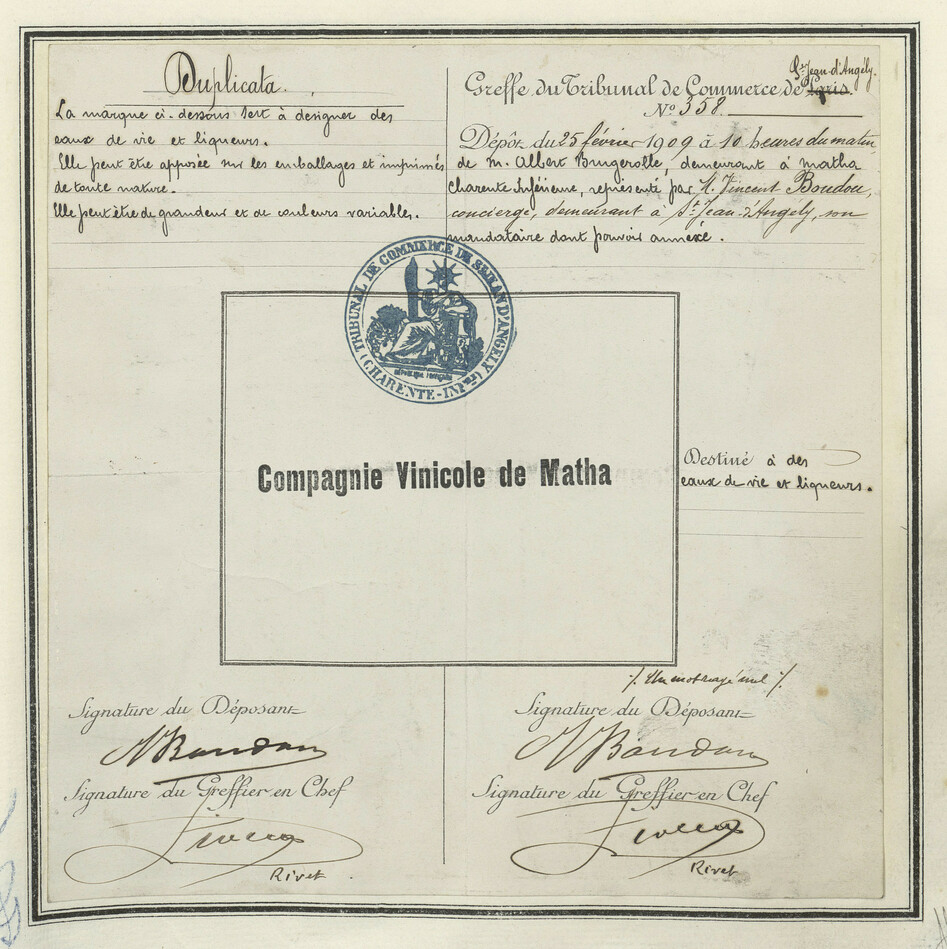 Duplicata.
La marque ci-dessous sert à designer des
eaux de vie et liqueurs.
Elle peut être apposée sur les emballages et imprimés
de toute nature.
Elle peut être de grandeur et de couleurs variables.
St Jean-d'Angély.
Greffe du Tribunal de Commerce de Paris.
No 358.
Dépôt du 25 février 1909 à 10 heures du matin,
de M. Albert Bugerolle, demeurant à Matha
Charente Inférieure, représenté par M. Vincent Boudou,
concierge, demeurant à St Jean-d'Angély, son
mandataire dont pouvoir annexé.
TRIBUNAL DE COMMERCE DE ST JEAN D'ANGELY
(CHARENTE-INFre)
REPUBLIQUE FRANÇAISE
Compagnie Vinicole de Matha
Destiné à des
eaux de vie et liqueurs.
Un mot rayé nul
Signature du Déposant
Boudou
Signature du Greffier en Chef
Rivet
Signature du Déposant
Boudou
Signature du Greffier en Chef
Rivet